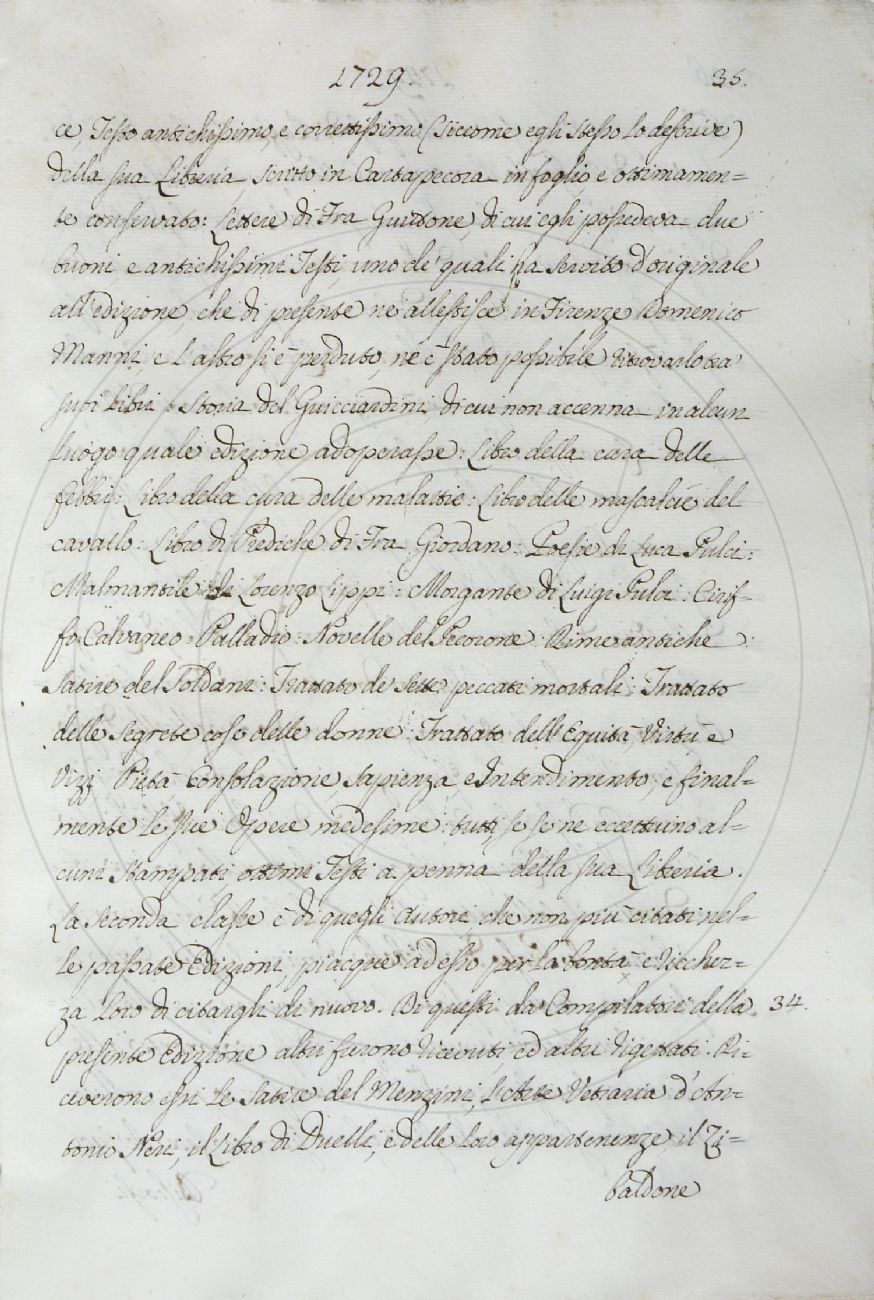 1729.
35.
ce, Testo antichissimo, e correttissimo (siccome egli stesso lo descrive)
della sua Libreria scritto in Cartapecora in foglio, e ottimamen=
te conservato: Lettere di Fra Guittone, di cui egli possedeva due
buoni, e antichissimi Testi, uno de' quali ha servito d'originale
all'edizione, che di presente ne allestisce in Firenze Domenico
Manni, e l'altro si è perduto, nè è stato possibile ritrovarlo tra
suoi Libri: Storia del Guicciardini, di cui non accenna in alcun
luogo quale edizione adoperasse: Libro della cura delle
febbri: Libro della cura delle malattie: Libro delle mascalcie del
cavallo: Libro di Prediche di Fra Giordano: Poesie di Luca Pulci:
Malmantile di Lorenzo Lippi: Morgante di Luigi Pulci: Cirif=
fo Calvaneo: Palladio: Novelle del Pecorone: Rime antiche:
Satire del Soldani: Trattato de Sette peccati mortali: Trattato
delle segrete cose delle donne: Trattato dell'Equità, Virtù e
Vizj, Pietà, Consolazione, Sapienza, e Intendimento, e final=
mente le sue Opere medesime: tutti, se se ne eccettuino al=
cuni Stampati, ottimi Testi a penna della sua Libreria.
La seconda classe è di quegli Autori, che non più citati nel=
le passate Edizioni, piacque ad esso per la bontà, e ricchez=
za loro di citargli di nuovo. Di questi da Compilatori della
34.
presente Edizione altri furono ricevuti, ed altri rigettati. Ri=
ceverono essi le Satire del Menzini, l'Arte Vetraria d'An=
tonio Neri, il Libro di Duelli, e delle loro appartenenze, il Zi=
baldone